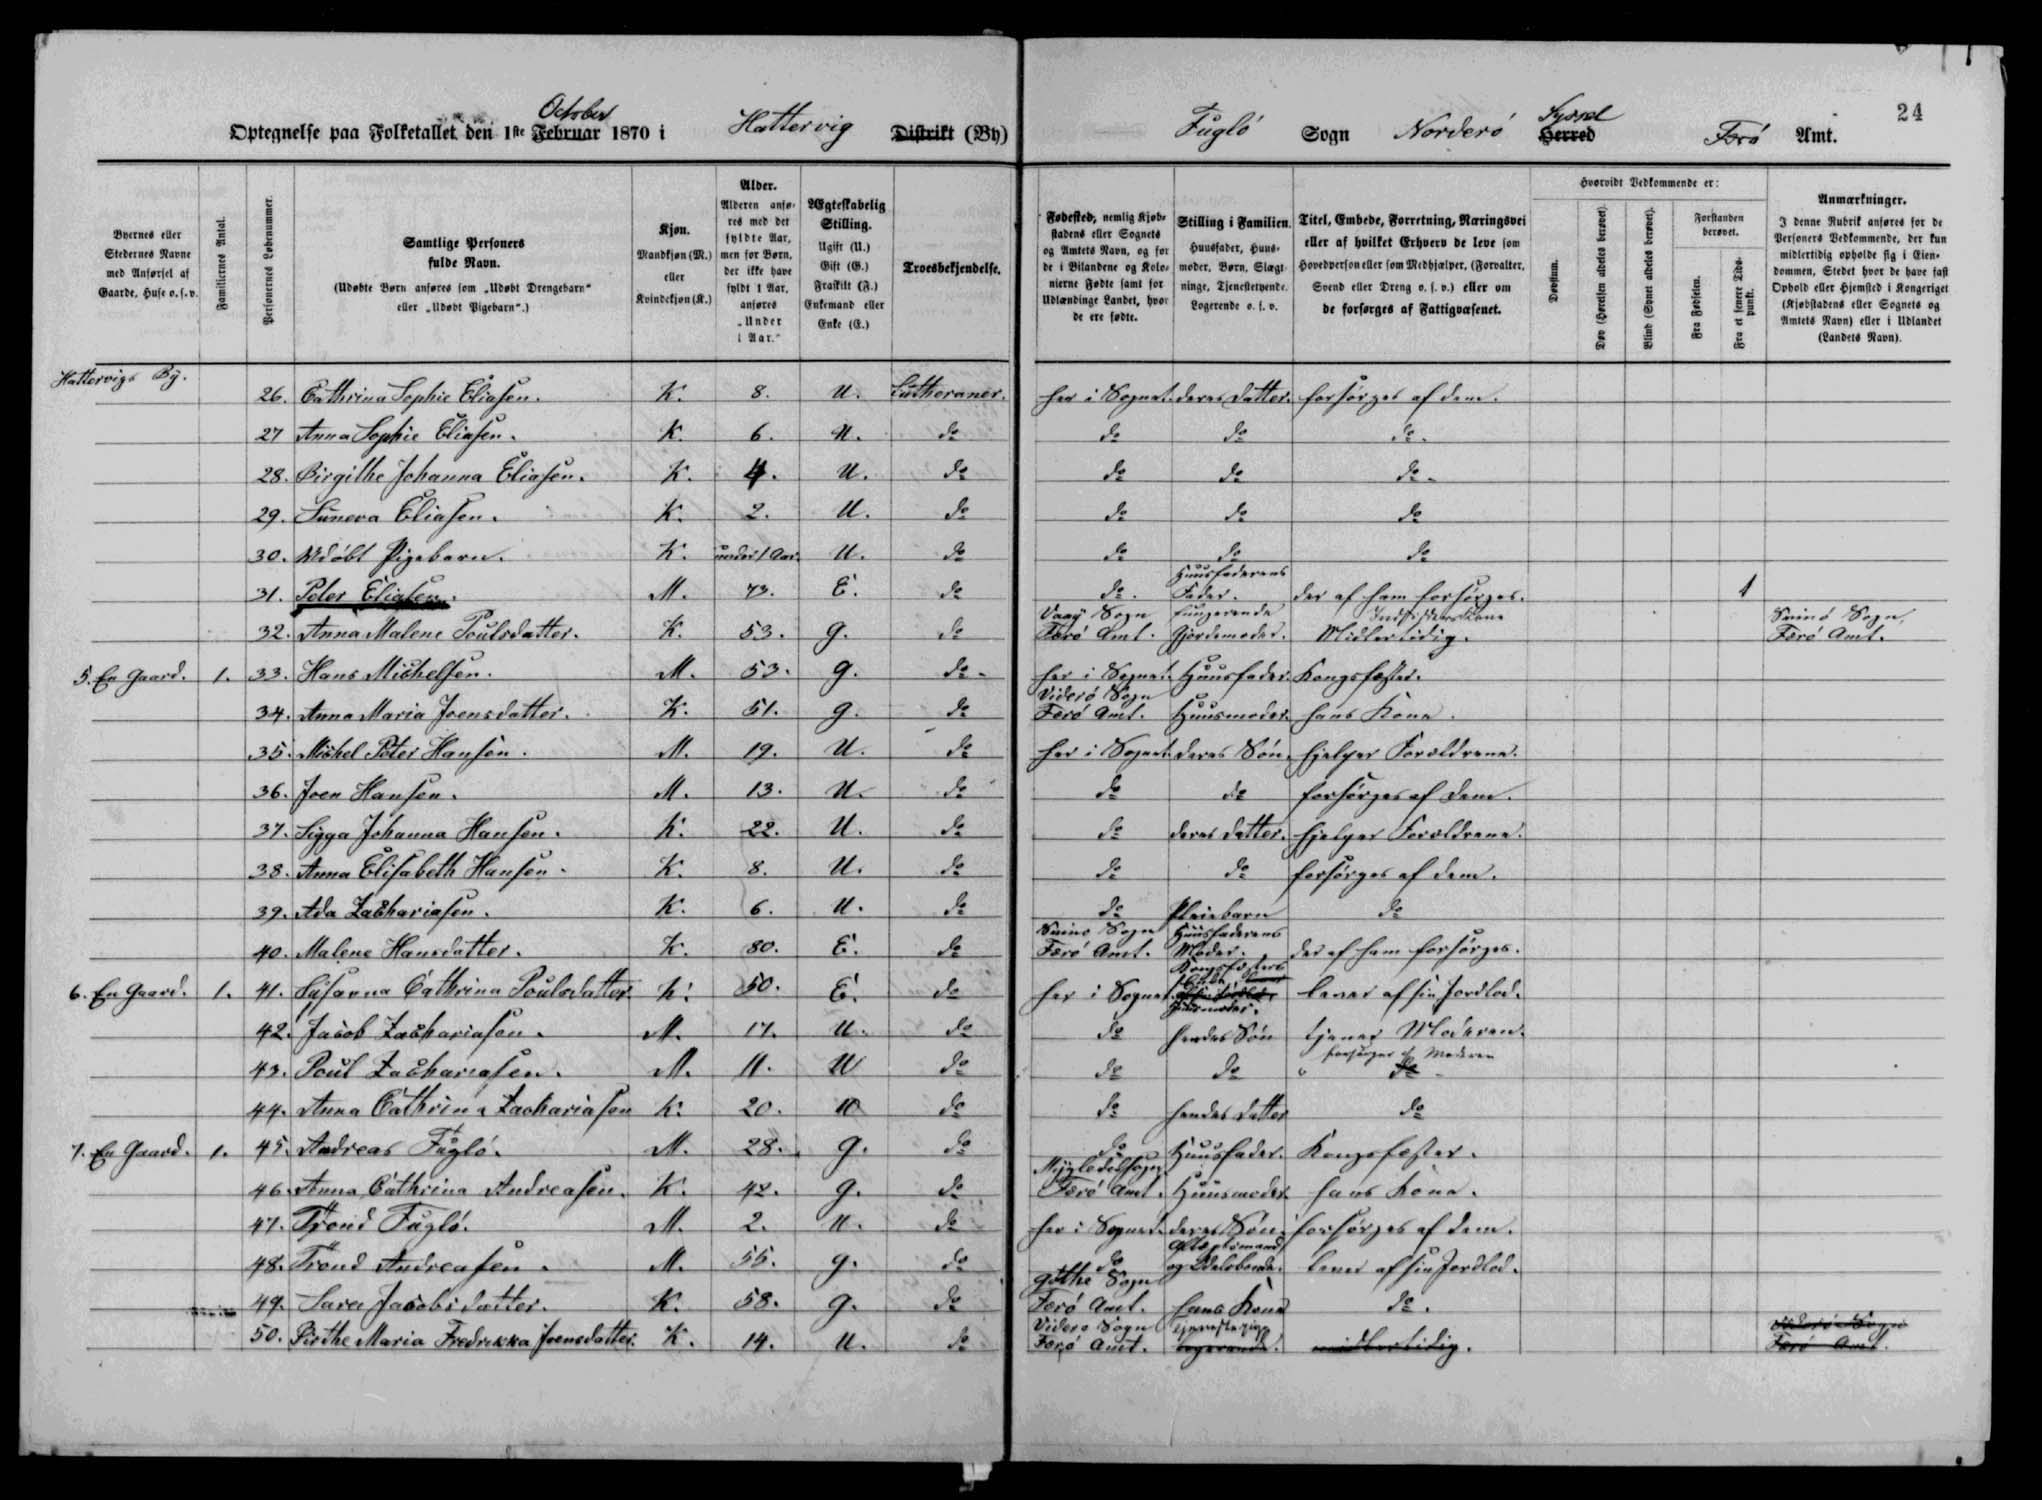 24
October
Optegnelse paa Folketallet den 1ste Februar 1870 i Hattervig Distrikt (By)
Fuglö Sogn Norderö Syssel Herred Færö Amt.
Byernes eller Stedernes Navne med Anførsel af Gaarde, Huse o. s. v.
Familiernes Antal.
Personernes Løbenummer.
Samtlige Personers fulde Navn.
(Udøbte Børn anføres som „Udøbt Drengebarn“ eller „Udøbt Pigebarn“.)
Kjøn.
Mandkjøn (M.) eller Kvindekjøn (K.)
Alder.
Alderen anføres med det fyldte Aar, men for Børn, der ikke have fyldt 1 Aar, anføres „Under 1 Aar.“
Ægteskabelig Stilling.
Ugift (U.) Gift (G.) Fraskilt (F.) Enkemand eller Enke (E.)
Troesbekjendelse.
Fødested, nemlig Kjøbstadens eller Sognets og Amtets Navn, og for de i Bilandene og Kolonierne Fødte samt for Udlændinge Landet, hvor de ere fødte.
Stilling i Familien.
Huusfader, Huusmoder, Børn, Slægtninge, Tjenestetyende, Logerende o. s. v.
Titel, Embede, Forretning, Næringsvei eller af hvilket Erhverv de leve som Hovedperson eller som Medhjælper, (Forvalter, Svend eller Dreng o. s. v.) eller om de forsørges af Fattigvæsenet.
Hvorvidt Vedkommende er:
Døvstum.
Døv (Hørelsen aldeles berøvet).
Blind (Synet aldeles berøvet).
Forstanden berøvet.
Fra Fødselen.
Fra et senere Tidspunkt.
Anmærkninger.
I denne Rubrik anføres for de Personers Vedkommende, der kun midlertidig opholde sig i Eiendommen, Stedet hvor de have fast Ophold eller Hjemsted i Kongeriget (Kjøbstadens eller Sognets og Amtets Navn) eller i Udlandet (Landets Navn).
Hattervigs By.
26. Cathrina Sophie Eliasen. K. 8. U. Lutheraner. her i Sognet. deres Datter. forsörges af dem.
27 Anna Sophie Eliasen. K. 6. U. do do do do.
28. Birgithe Johanna Eliasen. K. 4. U. do do do do.
29. Suneva Eliasen. K. 2. U. do do do do
30. Udöbt Pigebarn. K. under 1 Aar. U. do do do do
31. Peter Eliasen. M. 73. E. do do. Huusfaderens Fader. der af ham forsörges. 1
32. Anna Malene Poulsdatter. K. 53. g. do Vaag Sogn Færö Amt. fungerende Gjordemoder. Midlertidig. Svinö Sogn, Færö Amt.
5. En Gaard. 1. 33. Hans Michelsen. M. 53. g. do. her i Sognet. Huusfader. Kongsfæster.
34. Anna Maria Joensdatter. K. 51. g. do Viderö Sogn Færö Amt. Huusmoder. hans Kone.
35. Michel Peter Hansen. M. 19. U. do her i Sognet. deres Sön. hjelper Forældrene.
36. Joen Hansen. M. 13. U. do do do forsörges af dem.
37. Sigga Johanna Hansen. K. 22. U. do do deres Datter. hjelper Forældrene.
38. Anna Elisabeth Hansen. K. 8. U. do do do forsörges af dem.
39. Ada Zachariasen. K. 6. U. do do Pleiebarn do
40. Malene Hansdatter. K. 80. E. do Svino Sogn Færö Amt. Huusfaderens Moder. der af ham forsörges.
6. En Gaard. 1. 41. Susanna Cathrina Poulsdatter. K. 50. E. do her i Sognet. Kongsfæsters Huusmoder. lever af sin Jordlod.
42. Jacob Zachariasen. M. 17. U. do do hendes Sön tjener Moderen.
43. Poul Zachariasen. M. 11. U do do do forsörges af Moderen do
44. Anna Cathrina Zachariasen K. 20. U do do hendes Datter do
7. En Gaard. 1. 45. Andreas Fuglö. M. 28. g. do do Huusfader. Kongsfæster.
46. Anna Cathrina Andreasen. K. 42. g. do Mygledelssogn Færö Amt. Huusmoder. hans Kone.
47. Trond Fuglö. M. 2. U. do her i Sognet. deres Sön. forsörges af dem.
48. Trond Andreasen. M. 55. g. do do Aftægtsmand og Odelsbonde. lever af sin Jordlod.
49. Sara Jacobsdatter. K. 58. g. do Göthe Sogn Færö Amt. hans Kone do.
50. Birthe Maria Fredrikka Joensdatter. K. 14. U. do Videro Sogn Færö Amt. tjenestepige logerende. midlertidig. Viderö Sogn Færö Amt.